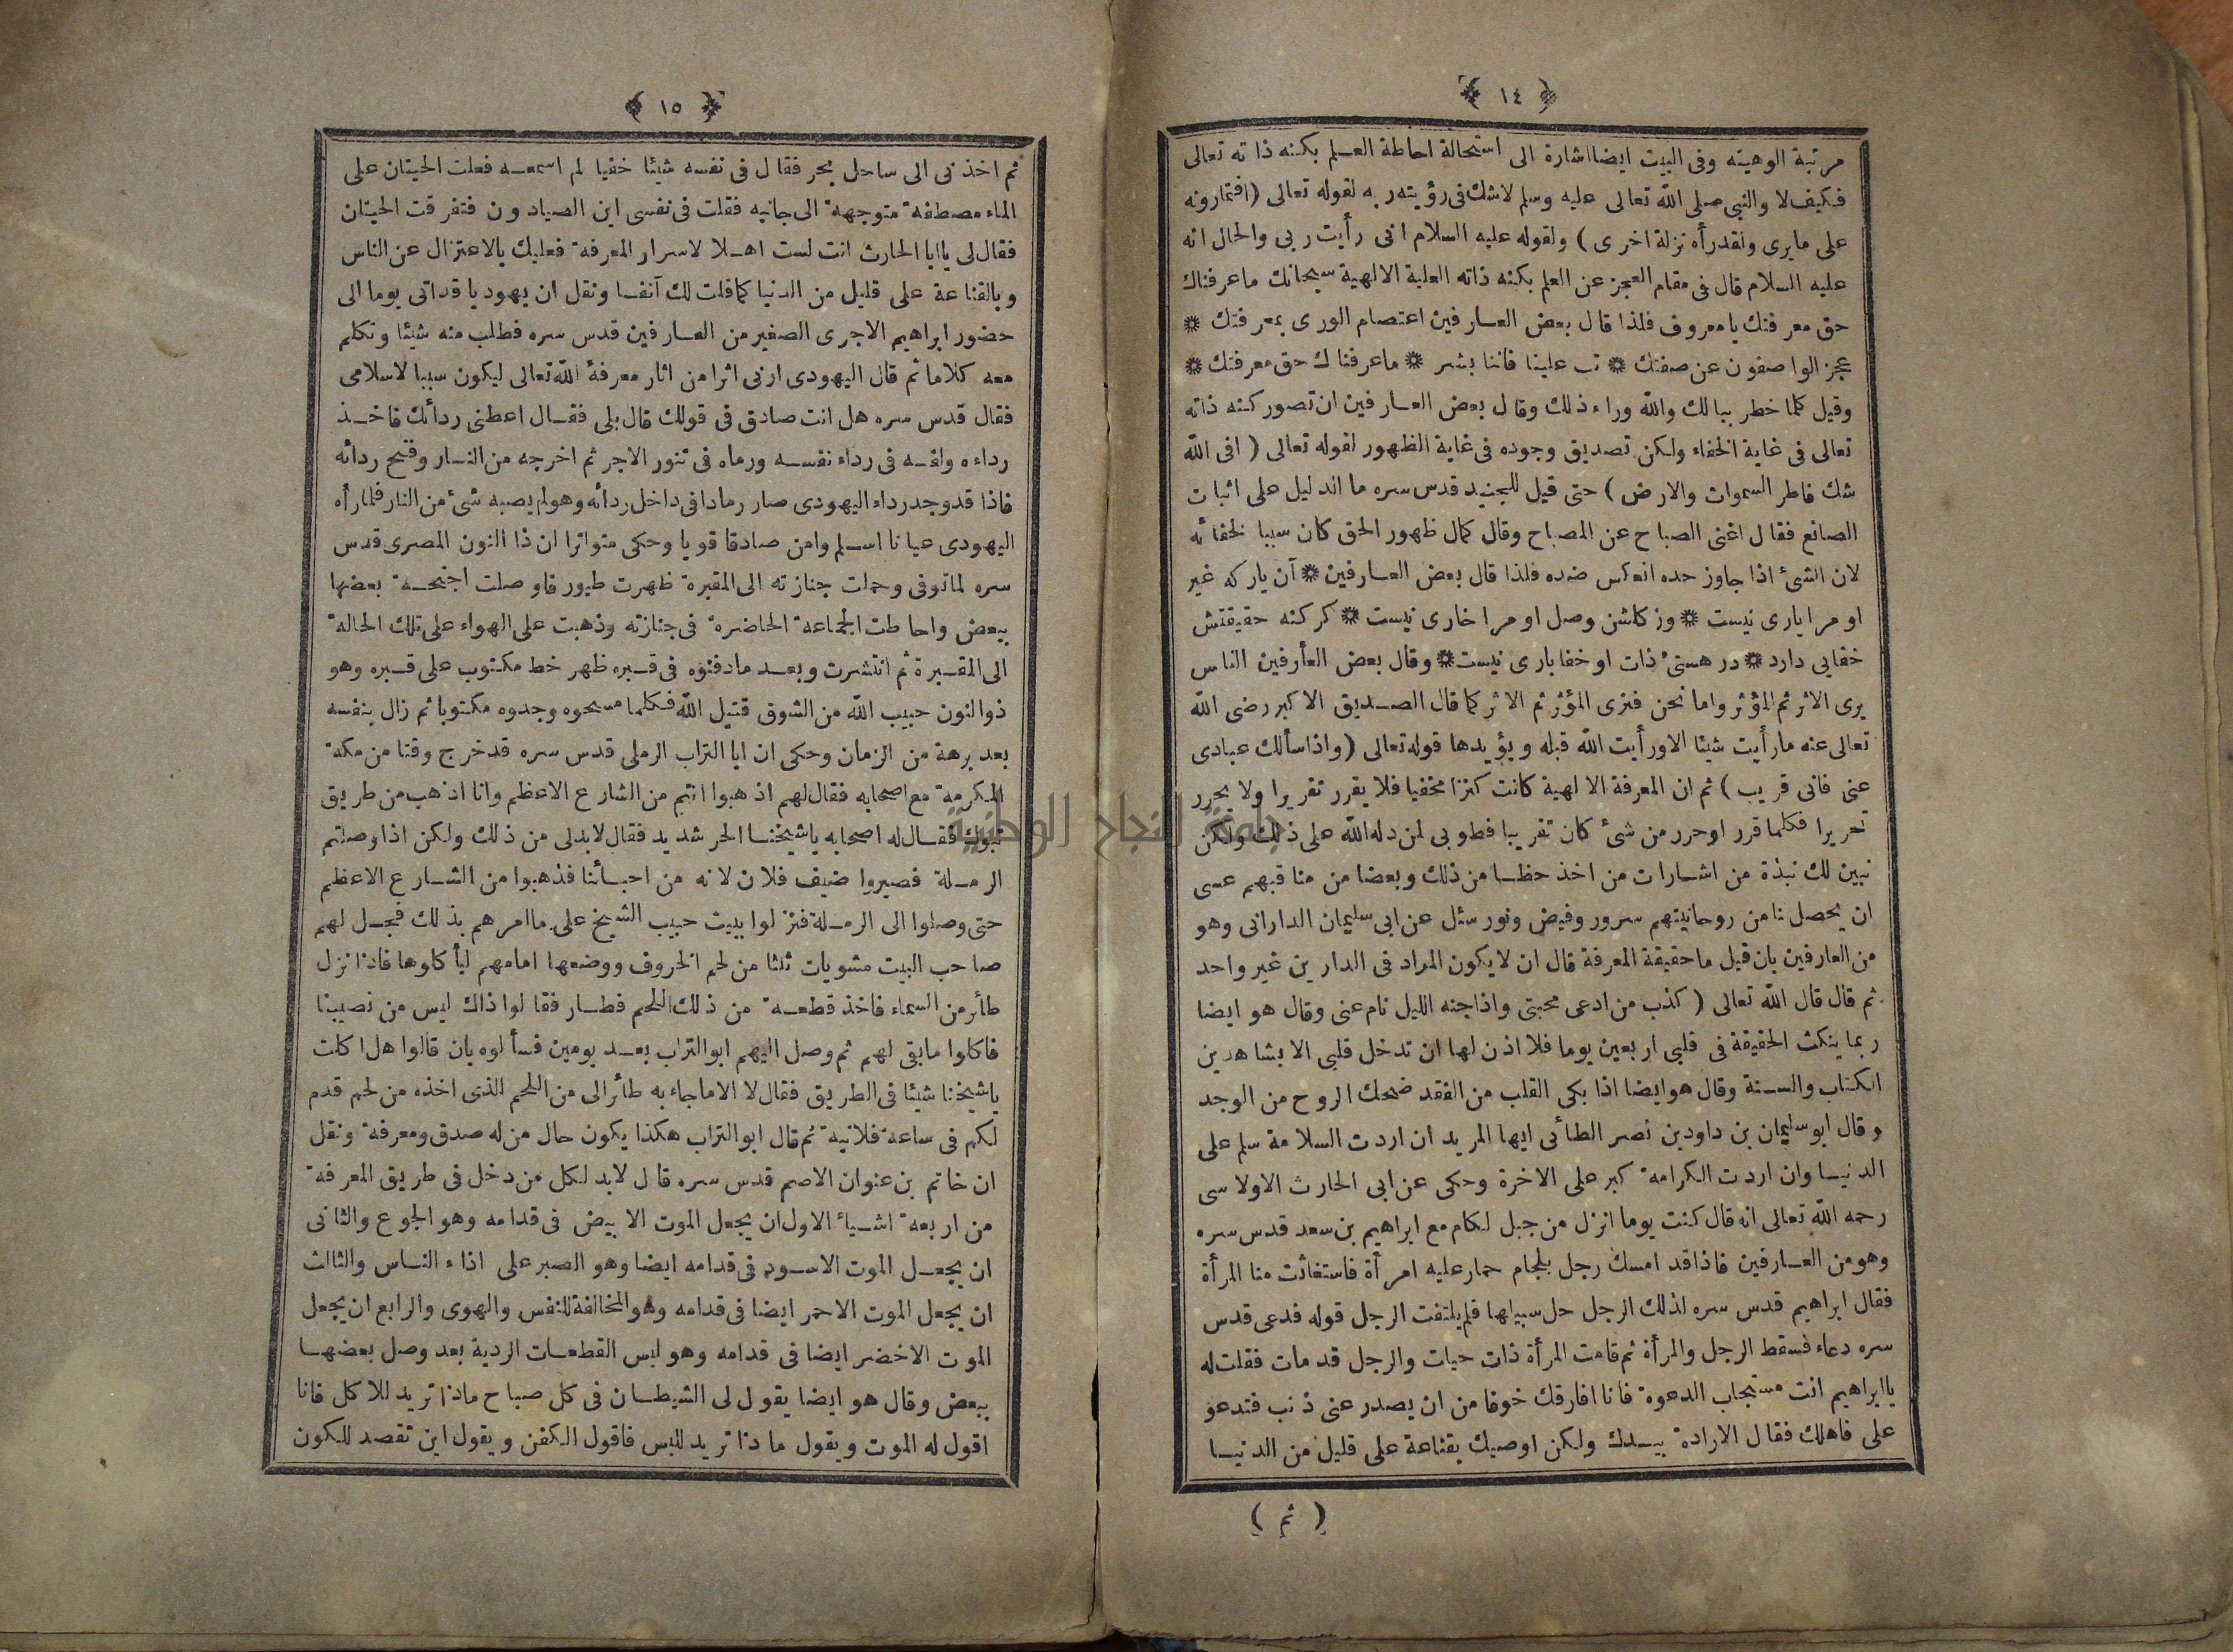 ﴿ ١٤ ﴾
مرتبة الوهيته وفى البيت ايضا اشارة الى استحالة احاطة العلم بكنه ذاته تعالى
فكيف لا والنبى صلى الله تعالى عليه وسلم لاشك فى رؤيته ربه لقوله تعالى (افتمارونه
على مايرى ولقدرأه نزلة اخرى ) ولقوله عليه السلام انى رأيت ربى والحال انه
عليه السلام قال فى مقام العجز عن العلم بكنه ذاته العلية الالهية سبحانك ماعرفناك
حق معرفتك يامعروف فلذا قال بعض العارفين اعتصام الورى بمعرفتك ❋
عجز الواصفون عن صفتك ❋ تب علينا فاننا بشر ❋ ماعرفناك حق معرفتك ❋
وقيل كلما خطر ببالك والله وراء ذلك وقال بعض العارفين ان تصور كنه ذاته
تعالى فى غاية الخفاء ولكن تصديق وجوده فى غاية الظهور لقوله تعالى ( افى الله
شك فاطر السموات والارض ) حتى قيل للجنيد قدس سره ما الدليل على اثبات
الصانع فقال اغنى الصباح عن المصباح وقال كمال ظهور الحق كان سببا لخفائه
لان الشئ اذا جاوز حده انعكس ضده فلذا قال بعض العارفين ❋ آن يار كه غير
او مرا يارى نيست ❋ وز كلشن وصل او مرا خارى نيست ❋ كر كنه حقيقتش
خفايى دارد ❋ در هستئ ذات او خفا بارى نيست ❋ وقال بعض العأرفين الناس
يرى الاثر ثم المؤثر واما نحن فنرى المؤثر ثم الاثر كما قال الصديق الاكبر رضى الله
تعالى عنه مارأيت شيئا الاورأيت الله قبله ويؤيدها قوله تعالى (واذا سألك عبادى
عنى فانى قريب ) ثم ان المعرفة الالهية كانت كنزا مخفيا فلا يقرر تقريرا ولا يحرر
تحريرا فكلما قرر اوحرر من شئ كان تقريبا فطوبى لمن دله الله على ذلك ولكن
نبين لك نبذة من اشارات من اخذ حظا من ذلك وبعضا من مناقبهم عسى
ان يحصل نا من روحانيتهم سرور وفيض ونور سئل عن ابى سليمان الدارانى وهو
من العارفين بان قيل ماحقيقة المعرفة قال ان لايكون المراد فى الدارين غير واحد
ثم قال قال الله تعالى ( كذب من ادعى محبتى واذاجنه الليل نام عنى وقال هو ايضا
ربما ينكت الحقيقة فى قلبى اربعين يوما فلا اذن لها ان تدخل قلبى الا بشاهدين
الكتاب والسنة وقال هو ايضا اذا بكى القلب من الفقد ضحك الروح من الوجد
وقال ابو سليمان بن داودبن نصر الطائى ايها المريد ان اردت السلامة سلم على
الدنيا وان اردت الكرامة كبر على الاخرة وحكى عن ابى الحارث الاولاسى
رحمه الله تعالى انه قال كنت يوما انزل من جبل لكام مع ابراهيم بن سعد قدس سره
وهو من العارفين فاذا قد امسك رجل بلجام حمار عليه امرأة فاستغاثت منا المرأة
فقال ابراهيم قدس سره لذلك الرجل حل سبيلها فلم يلتفت الرجل قوله فدعى قدس
سره دعاء فسقط الرجل والمرأة ثم قامت المرأة ذات حيات والرجل قد مات فقلت له
ياابراهيم انت مستجاب الدعوة فانا افارقك خوفا من ان يصدر عنى ذنب فتدعو
على فاهلك فقال الارادة بيدك ولكن اوصيك بقناعة على قليل من الدنيا
( ثم )
﴿ ١٥ ﴾
ثم اخذنى الى ساحل بحر فقال فى نفسه شيئا خفيا لم اسمعه فعلت الحيتان على
الماء مصطفة متوجهة الى جانبه فقلت فى نفسى اين الصيادون فتفرقت الحيتان
فقال لى ياابا الحارث انت لست اهلا لاسرار المعرفة فعليك بالاعتزال عن الناس
وبالقناعة على قليل من الدنيا كما قلت لك آنفا ونقل ان يهوديا قداتى يوما الى
حضور ابراهيم الاجرى الصغير من العارفين قدس سره فطلب منه شيئا وتكلم
معه كلاما ثم قال اليهودى ارنى اثرا من اثار معرفة الله تعالى ليكون سببا لاسلامى
فقال قدس سره هل انت صادق فى قولك قال بلى فقال اعطنى ردائك فاخذ
رداءه ولفه فى رداء نفسه ورماه فى تنور الاجر ثم اخرجه من النار وفتح ردائه
فاذا قدوجد رداء اليهودى صار رمادا فى داخل ردائه وهو لم يصبه شئ من النار فلمارأه
اليهودى عيانا اسلم وامن صادقا قويا وحكى متواترا ان ذا النون المصرى قدس
سره لماتوفى وحملت جنازته الى المقبرة ظهرت طيور فاوصلت اجنحة بعضها
ببعض واحاطت الجماعة الحاضرة فى جنازته وذهبت على الهواء على تلك الحالة
الى المقبرة ثم انتشرت وبعد مادفنوه فى قبره ظهر خط مكتوب على قبره وهو
ذوالنون حبيب الله من الشوق قتيل الله فكلما مسحوه وجدوه مكتوبا ثم زال بنفسه
بعد برهة من الزمان وحكى ان ابا التراب الرملى قدس سره قدخرج وقتا من مكة
المكرمة مع اصحابه فقال لهم اذهبوا انتم من الشارع الاعظم وانا اذهب من طريق
تبوك فقال له اصحابه ياشيخنا الحر شديد فقال لابدلى من ذلك ولكن اذا وصلتم
الرملة فصيروا ضيف فلان لانه من احبائنا فذهبوا من الشارع الاعظم
حتى وصلوا الى الرملة فنزلوا ببيت حبيب الشيخ على ماامرهم بذلك فجعل لهم
صاحب البيت مشويات ثلثا من لحم الخروف ووضعها امامهم ليأكلوها فاذا نزل
طائر من السماء فاخذ قطعة من ذلك اللحم فطار فقالوا ذاك ليس من نصيبنا
فاكلوا مابقى لهم ثم وصل اليهم ابوالتراب بعد يومين فسألوه بان قالوا هل اكلت
ياشيخنا شيئا فى الطريق فقال لا الا ماجاء به طائر الى من اللحم الذى اخذه من لحم قدم
لكم فى ساعة فلانية ثم قال ابوالتراب هكذا يكون حال من له صدق ومعرفة ونقل
ان خاتم بن عنوان الاصم قدس سره قال لابد لكل من دخل فى طريق المعرفة
من اربعة اشياء الاول ان يجعل الموت الابيض فى قدامه وهو الجوع والثانى
ان يجعل الموت الاسود فى قدامه ايضا وهو الصبر على اذاء الناس والثالث
ان يجعل الموت الاحمر ايضا فى قدامه وهو المخالفة للنفس والهوى والرابع ان يجعل
الموت الاخضر ايضا فى قدامه وهو لبس القطعات الردية بعد وصل بعضها
ببعض وقال هو ايضا يقول لى الشيطان فى كل صباح ماذا تريد للاكل فانا
اقول له الموت ويقول ماذا تريد للبس فاقول الكفن ويقول اين تقصد للكون
جامعة النجاح الوطنية